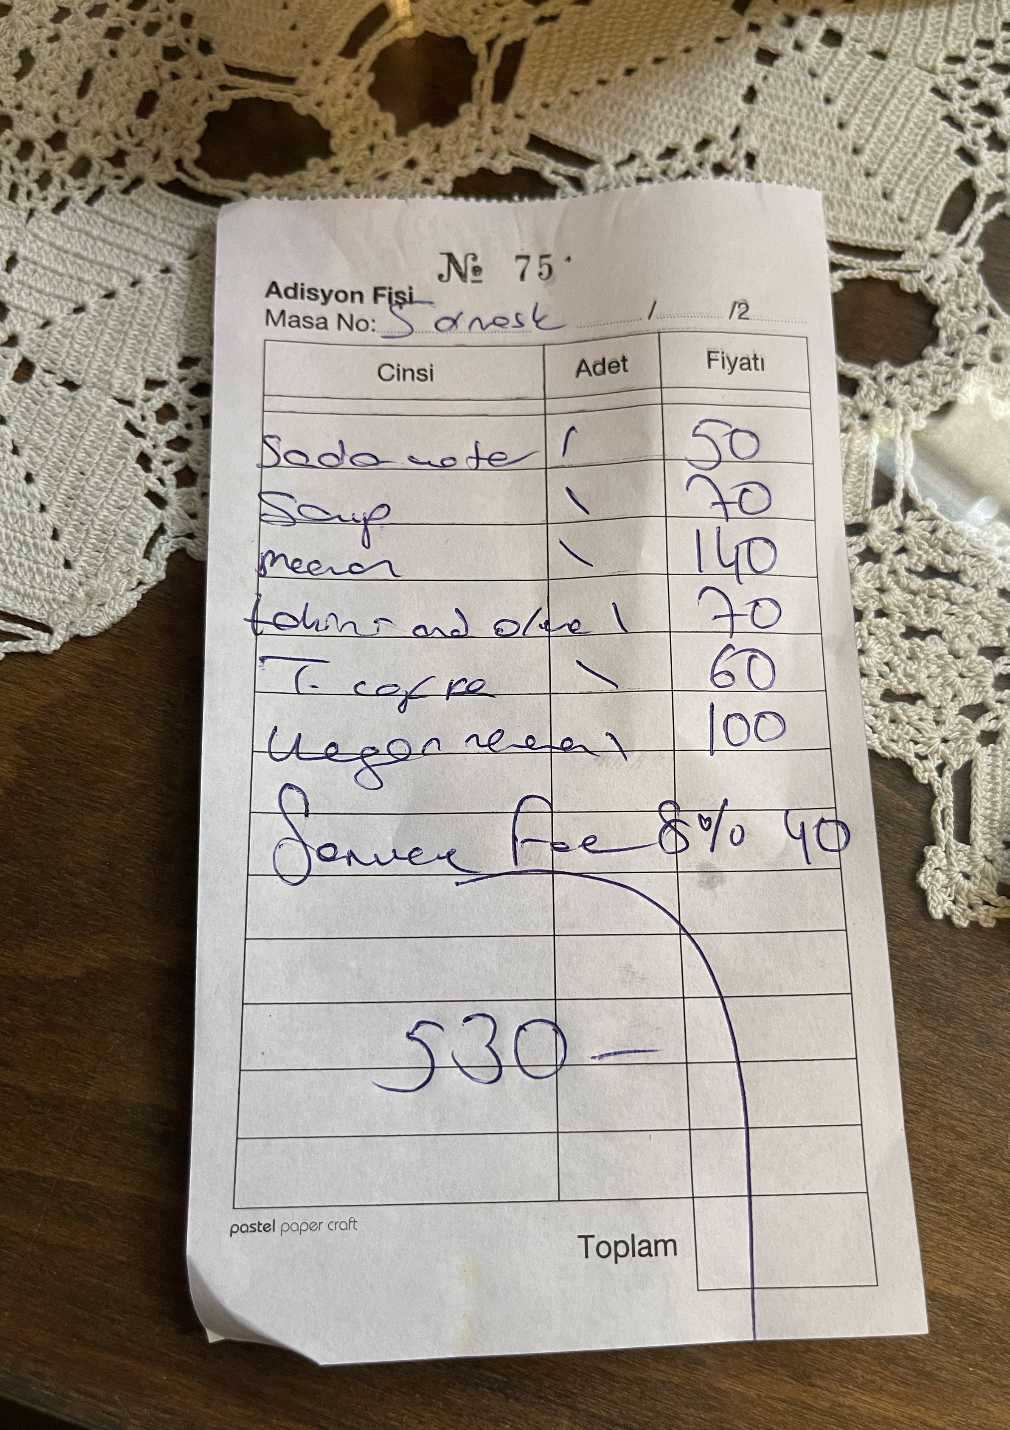 № 75
Adisyon Fişi
Masa No: 5 / /2
Cinsi Adet Fiyatı
Soda water 1 50
Soup 1 70
1 140
tahini and olive 1 70
T. coffee 1 60
Vegan 1 100
Service Fee 8% 40
530 —
pastel paper craft
Toplam